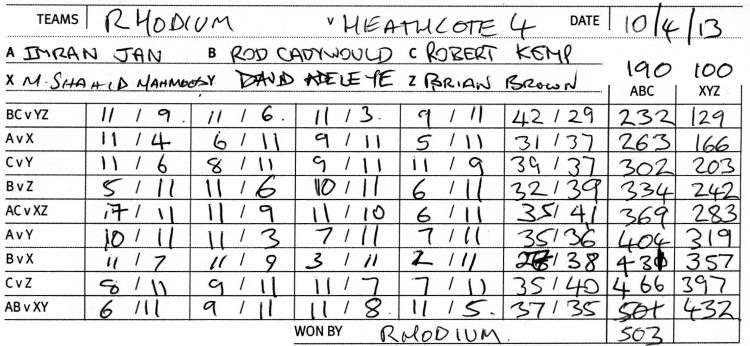 TEAMS RHODIUM V HEATHCOTE 4 DATE 10/4/13
A IMRAN JAN B ROD CADYWOULD C ROBERT KEMP
190 100
X M. SHAHID MAHMOOD Y DAVID ADELEYE Z BRIAN BROWN ABC XYZ
BC v YZ 11 / 9. 11 / 6. 11 / 3. 9 / 11 42 / 29 232 129
A v X 11 / 4 6 / 11 9 / 11 5 / 11 31 / 37 263 166
C v Y 11 / 6 8 / 11 9 / 11 11 / 9 39 / 37 302 203
B v Z 5 / 11 11 / 6 10 / 11 6 / 11 32 / 39 334 242
AC v XZ 7 / 11 11 / 9 11 / 10 6 / 11 35 / 41 369 283
A v Y 10 / 11 11 / 3 7 / 11 7 / 11 35 / 36 404 319
B v X 11 / 7 11 / 9 3 / 11 2 / 11 / 38 431 357
C v Z 8 / 11 9 / 11 11 / 7 7 / 11 35 / 40 466 397
AB v XY 6 / 11 9 / 11 11 / 8. 11 / 5. 37 / 35 501 432
WON BY RHODIUM. 503